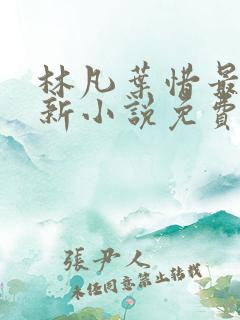 林凡葉惜最
新小說免費
張尹人
未经同意禁止转载